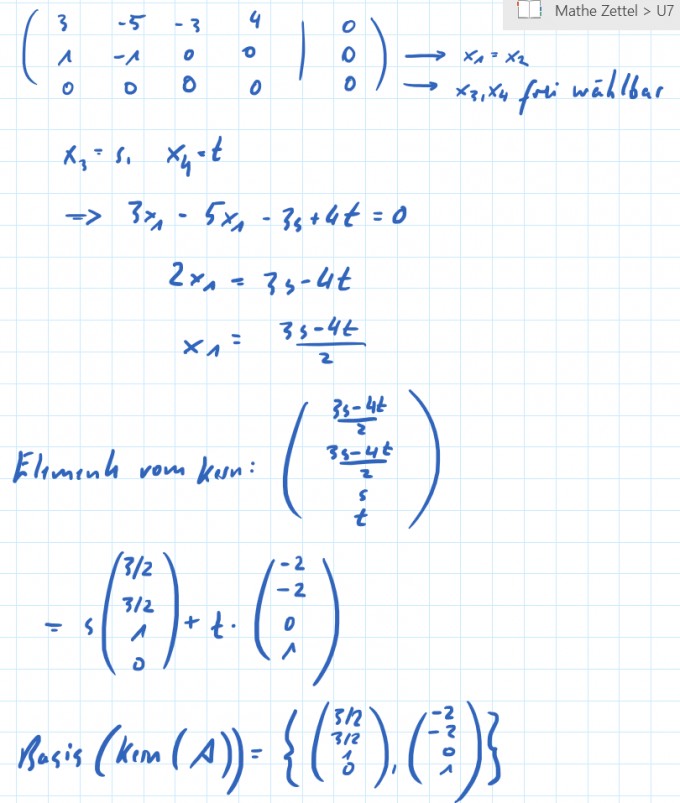 Mathe Zettel > U7
( 3 -5 -3 4 | 0 )
( 1 -1 0 0 | 0 ) → x₁ = x₂
( 0 0 0 0 | 0 ) → x₃, x₄ frei wählbar
x₃ = s, x₄ = t
=> 3x₁ - 5x₁ - 3s + 4t = 0
2x₁ = 3s - 4t
x₁ = (3s - 4t)/2
Elemente vom Kern: ( (3s-4t)/2, (3s-4t)/2, s, t )
= s ( 3/2, 3/2, 1, 0 ) + t · ( -2, -2, 0, 1 )
Basis (Kern (A)) = { ( 3/2, 3/2, 1, 0 ), ( -2, -2, 0, 1 ) }